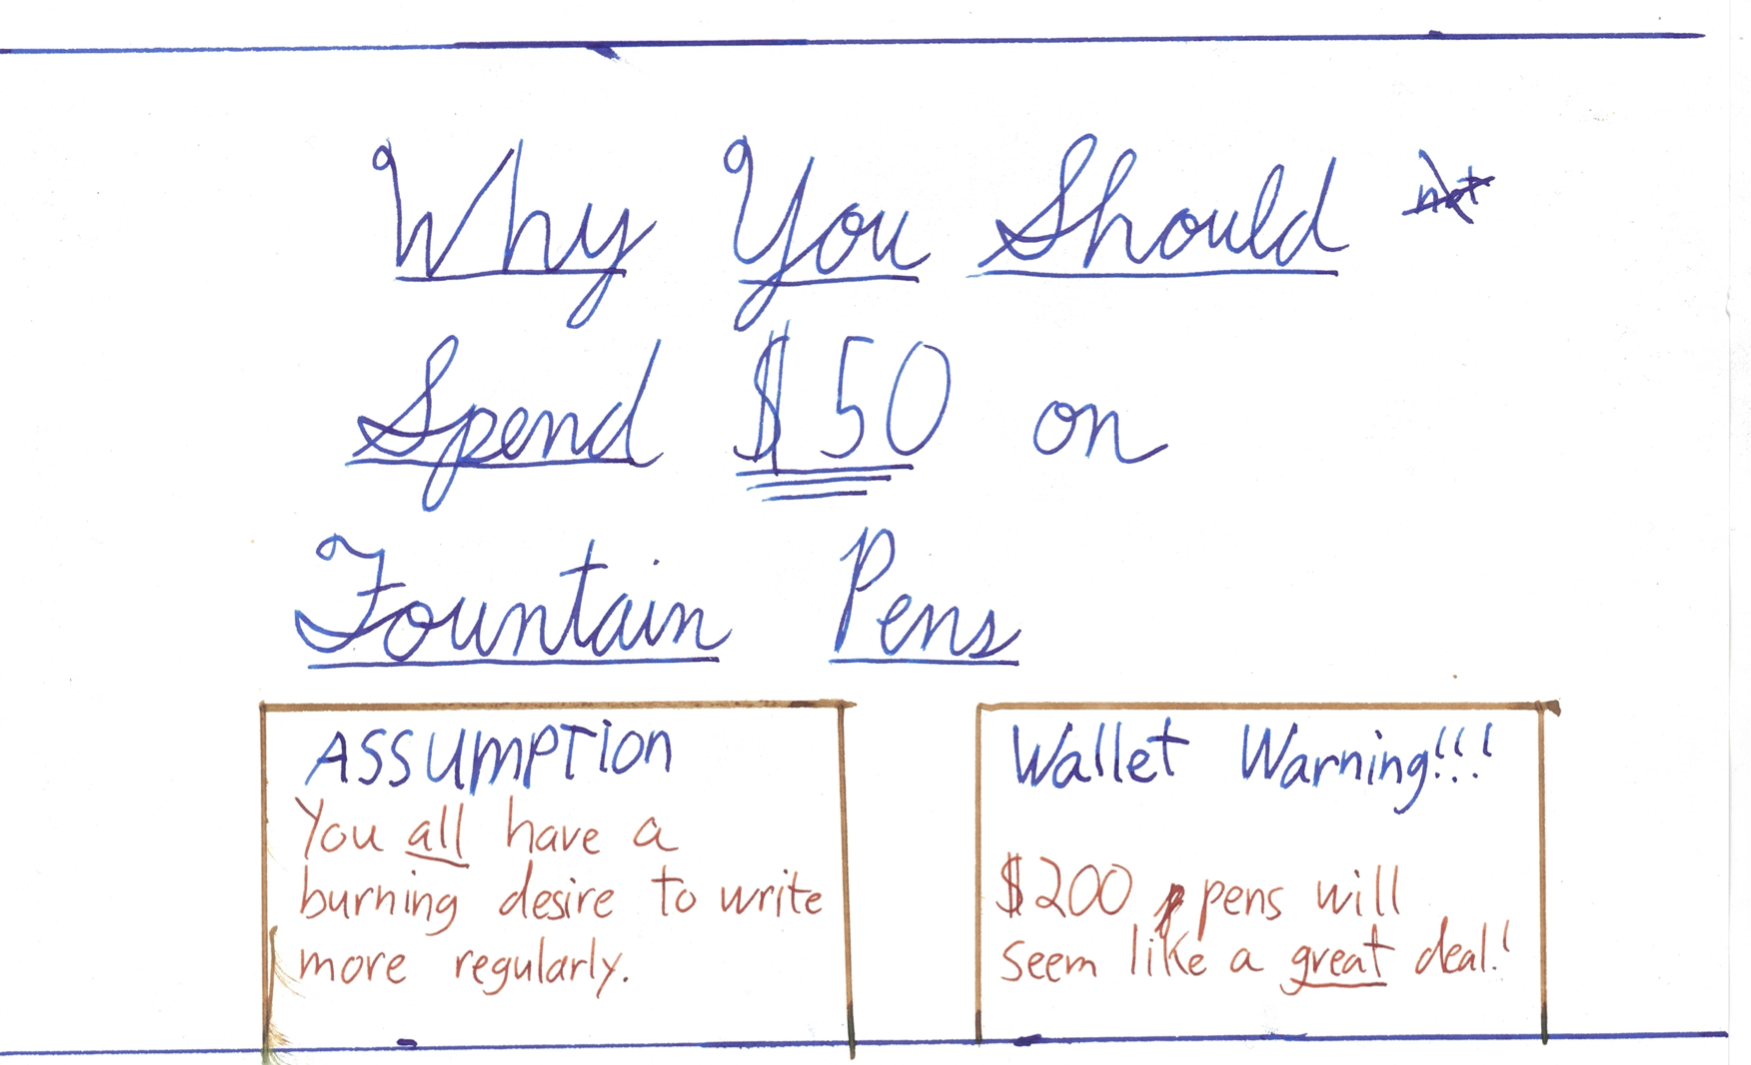 Why You Should not
Spend $50 on
Fountain Pens
ASSUMPTION
You all have a
burning desire to write
more regularly.
Wallet Warning!!!
$200 pens will
seem like a great deal!